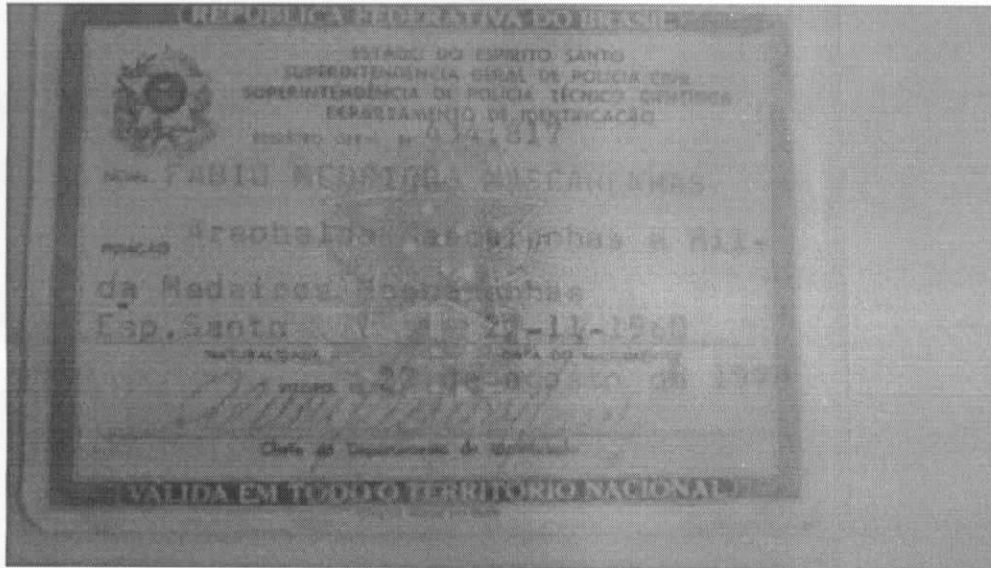 REPÚBLICA FEDERATIVA DO BRASIL
ESTADO DO ESPIRITO SANTO
SUPERINTENDÊNCIA GERAL DE POLÍCIA CIVIL
SUPERINTENDÊNCIA DE POLÍCIA TÉCNICO CIENTÍFICA
DEPARTAMENTO DE IDENTIFICAÇÃO
REGISTRO GERAL Nº 434.817
NOME FABIO MEDEIROS MASCARENHAS
FILIAÇÃO Mascarenhas e Hil-
da Medeiros Mascarenhas
Esp.Santo 22-11-1960
NATURALIDADE DATA DO NASCIMENTO
29 de agosto de
Chefe do Departamento de Identificação
VÁLIDA EM TODO O TERRITÓRIO NACIONAL